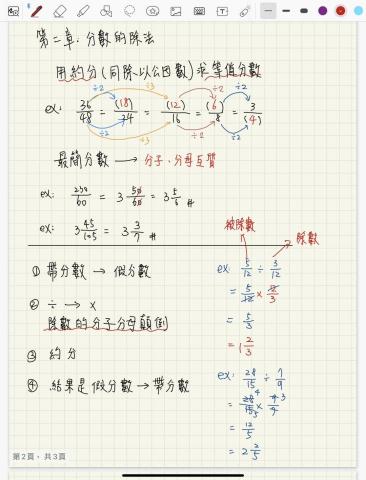 第二章．分數的除法
用約分(同除以公因數)求等值分數
÷2 ÷3 ÷2 ÷2
ex: 36/48 = (18)/24 = (12)/16 = (6)/8 = 3/(4)
÷2 ÷3 ÷2 ÷2
最簡分數 → 分子、分母互質
ex: 230/60 = 3 50/60 = 3 5/6 #
ex: 3 45/105 = 3 3/7 #
被除數 除數
① 帶分數 → 假分數
② ÷ → ×
除數的分子分母顛倒
③ 約分
④ 結果是假分數→帶分數
ex: 5/12 ÷ 3/12
= 5/12 × 12/3
= 5/3
= 1 2/3
ex: 28/15 ÷ 7/9
= 28/15 × 9/7
4 5 3
= 12/5
= 2 2/5
第2頁，共3頁